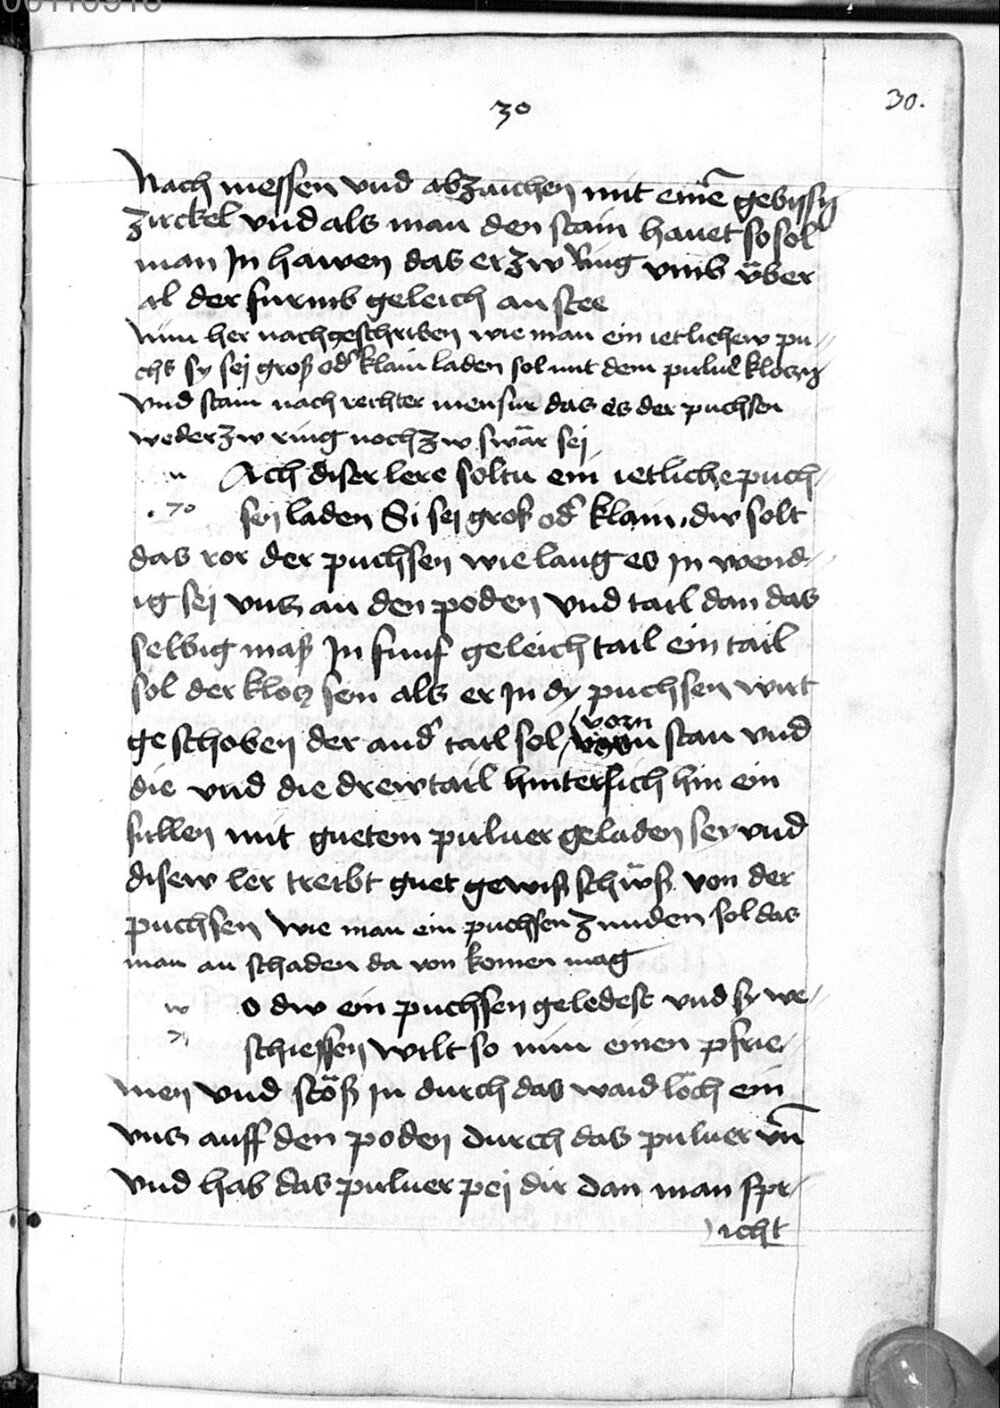 30
30.
Nach messen vnd abzaichen mit eine͂ gebissn̄
zirckel vnd als man den stain hauet so sol
man In hawen das er zw Ring vmb v̈ber
al der furmb geleich an stee
Nun her nach geschriben wie man ein ietlichew pu-
chs sy sej groß od' klain laden sol mit dem puluer klotzn
vnd stain nach rechter mensur das es der puchsen
weder zw ring noch zw swär sei
n Ach diser lere soltu ein ietliche puch-
.70 sen laden Si sej groß od' klain, dw solt
das ror der puchsen wie lang es In wend-
ig sej vntz an den poden vnd tail dan das
selbig maß In funf geleich tail ein tail
sol der klotz sein als er In dy puchsen wirt
geschoben der and' tail sol vorn stan vnd
die vnd die drew tail hintersich hin ein
fullen mit guetem puluer geladen sey vnd
disew ler treibt guet gewiß schüß von der
puchsen Wie man ein puchsen zunden sol das
man an schaden da von komen mag
w o dw ein puchsen geledest vnd sy we-
71 schiessen wilt so nim einen pfrie-
men vnd stöß In durch das waidloch ein
vntz auff den poden durch das puluer vn̄
vnd hab das puluer pej dir dan man spr-
icht